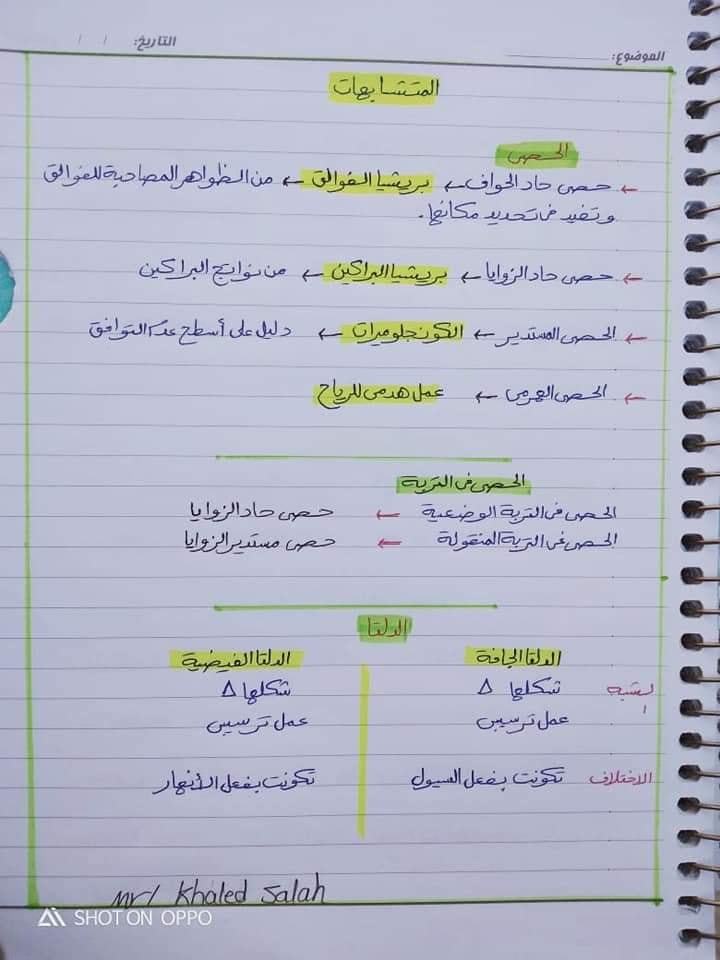 الموضوع: التاريخ: / /
المتشابهات
الحصى
← حصى حاد الحواف ← بريشيا الفوالق ← من الظواهر المصاحبة للفوالق
وتفيد فى تحديد مكانها.
← حصى حاد الزوايا ← بريشيا البراكين ← من نواتج البراكين
← الحصى المستدير ← الكونجلوميرات ← دليل على أسطح عدم التوافق
← الحصى الهرمى ← عمل هدمى للرياح
الحصى فى التربة
الحصى فى التربة الوضعية ← حصى حاد الزوايا
الحصى فى التربة المنقولة ← حصى مستدير الزوايا
الدلتا
الدلتا الجافة الدلتا الفيضية
الشبه شكلها Δ شكلها Δ
عمل ترسيبى عمل ترسيبى
الاختلاف تكونت بفعل السيول تكونت بفعل الأنهار
mr/ Khaled Salah
SHOT ON OPPO